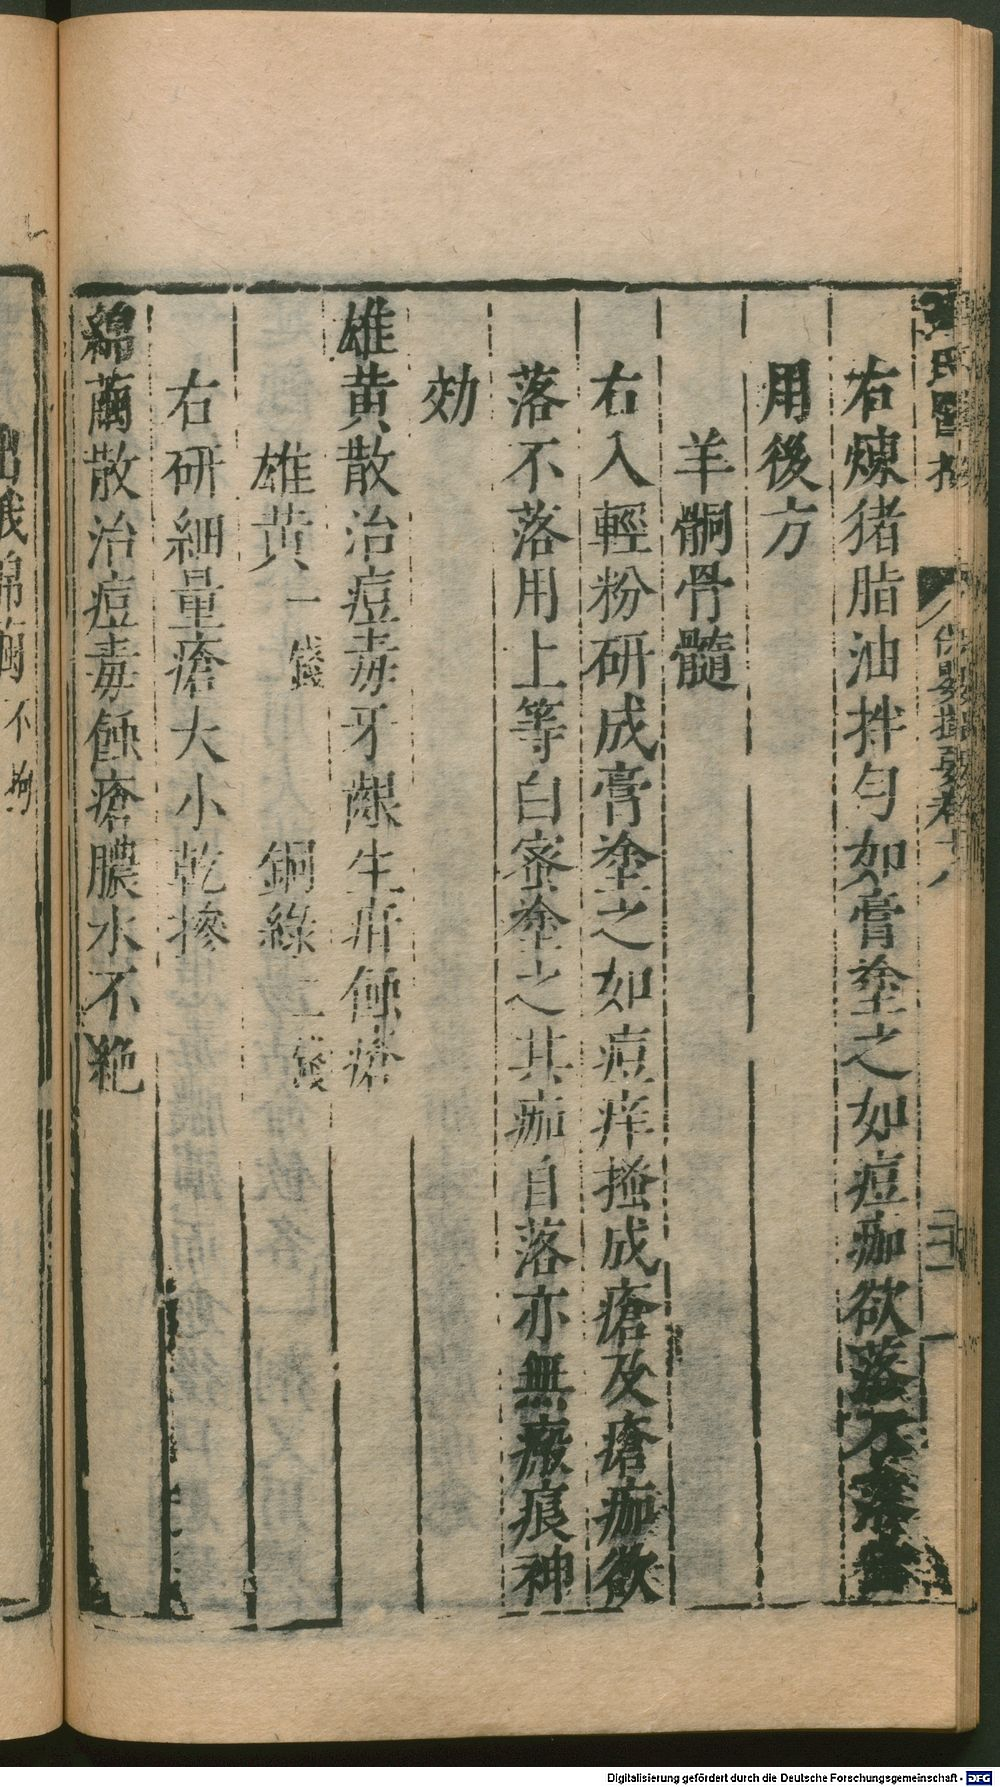 右煉猪脂油拌勻如膏塗之如痘痂欲落不落當
用後方
羊䯒骨髓
右入輕粉研成膏塗之如痘痒搔成瘡及瘡痂欲
落不落用上等白蜜塗之其痂自落亦無瘢痕神
効
雄黄散治痘毒牙齦生疳蝕瘡
雄黄一錢 銅綠二錢
右研細量瘡大小乾摻
綿繭散治痘毒蝕瘡膿水不絶
出蛾綿繭不拘
Digitalisierung gefördert durch die Deutsche Forschungsgemeinschaft - DFG